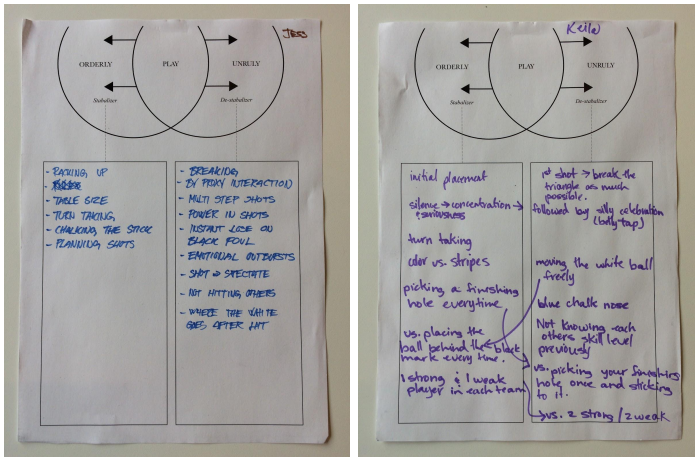 JESS
ORDERLY
PLAY
UNRULY
Stabalizer
De-stabalizer
- RACKING UP
- TABLE SIZE
- TURN TAKING
- CHALKING THE STICK
- PLANNING SHOTS
- BREAKING
- BY PROXY INTERACTION
- MULTI STEP SHOTS
- POWER IN SHOTS
- INSTANT LOSE ON
BLACK FOUL
- EMOTIONAL OUTBURSTS
- SHOT → SPECTATE
- NOT HITTING OTHERS
- WHERE THE WHITE
GOES AFTER HIT
Keila
ORDERLY
PLAY
UNRULY
Stabalizer
De-stabalizer
initial placement
silence → concentration →
& seriousness
turn taking
color vs. stripes
picking a finishing
hole everytime
vs. placing the
ball behind the black
mark every time.
1 strong & 1 weak
player in each team
1st shot → break the
triangle as much
possible.
followed by silly celebration
(belly-tap)
moving the white ball
freely
blue chalk nose
Not knowing each
others skill level
previously
vs. picking your finishing
hole once and sticking
to it.
vs. 2 strong / 2 weak